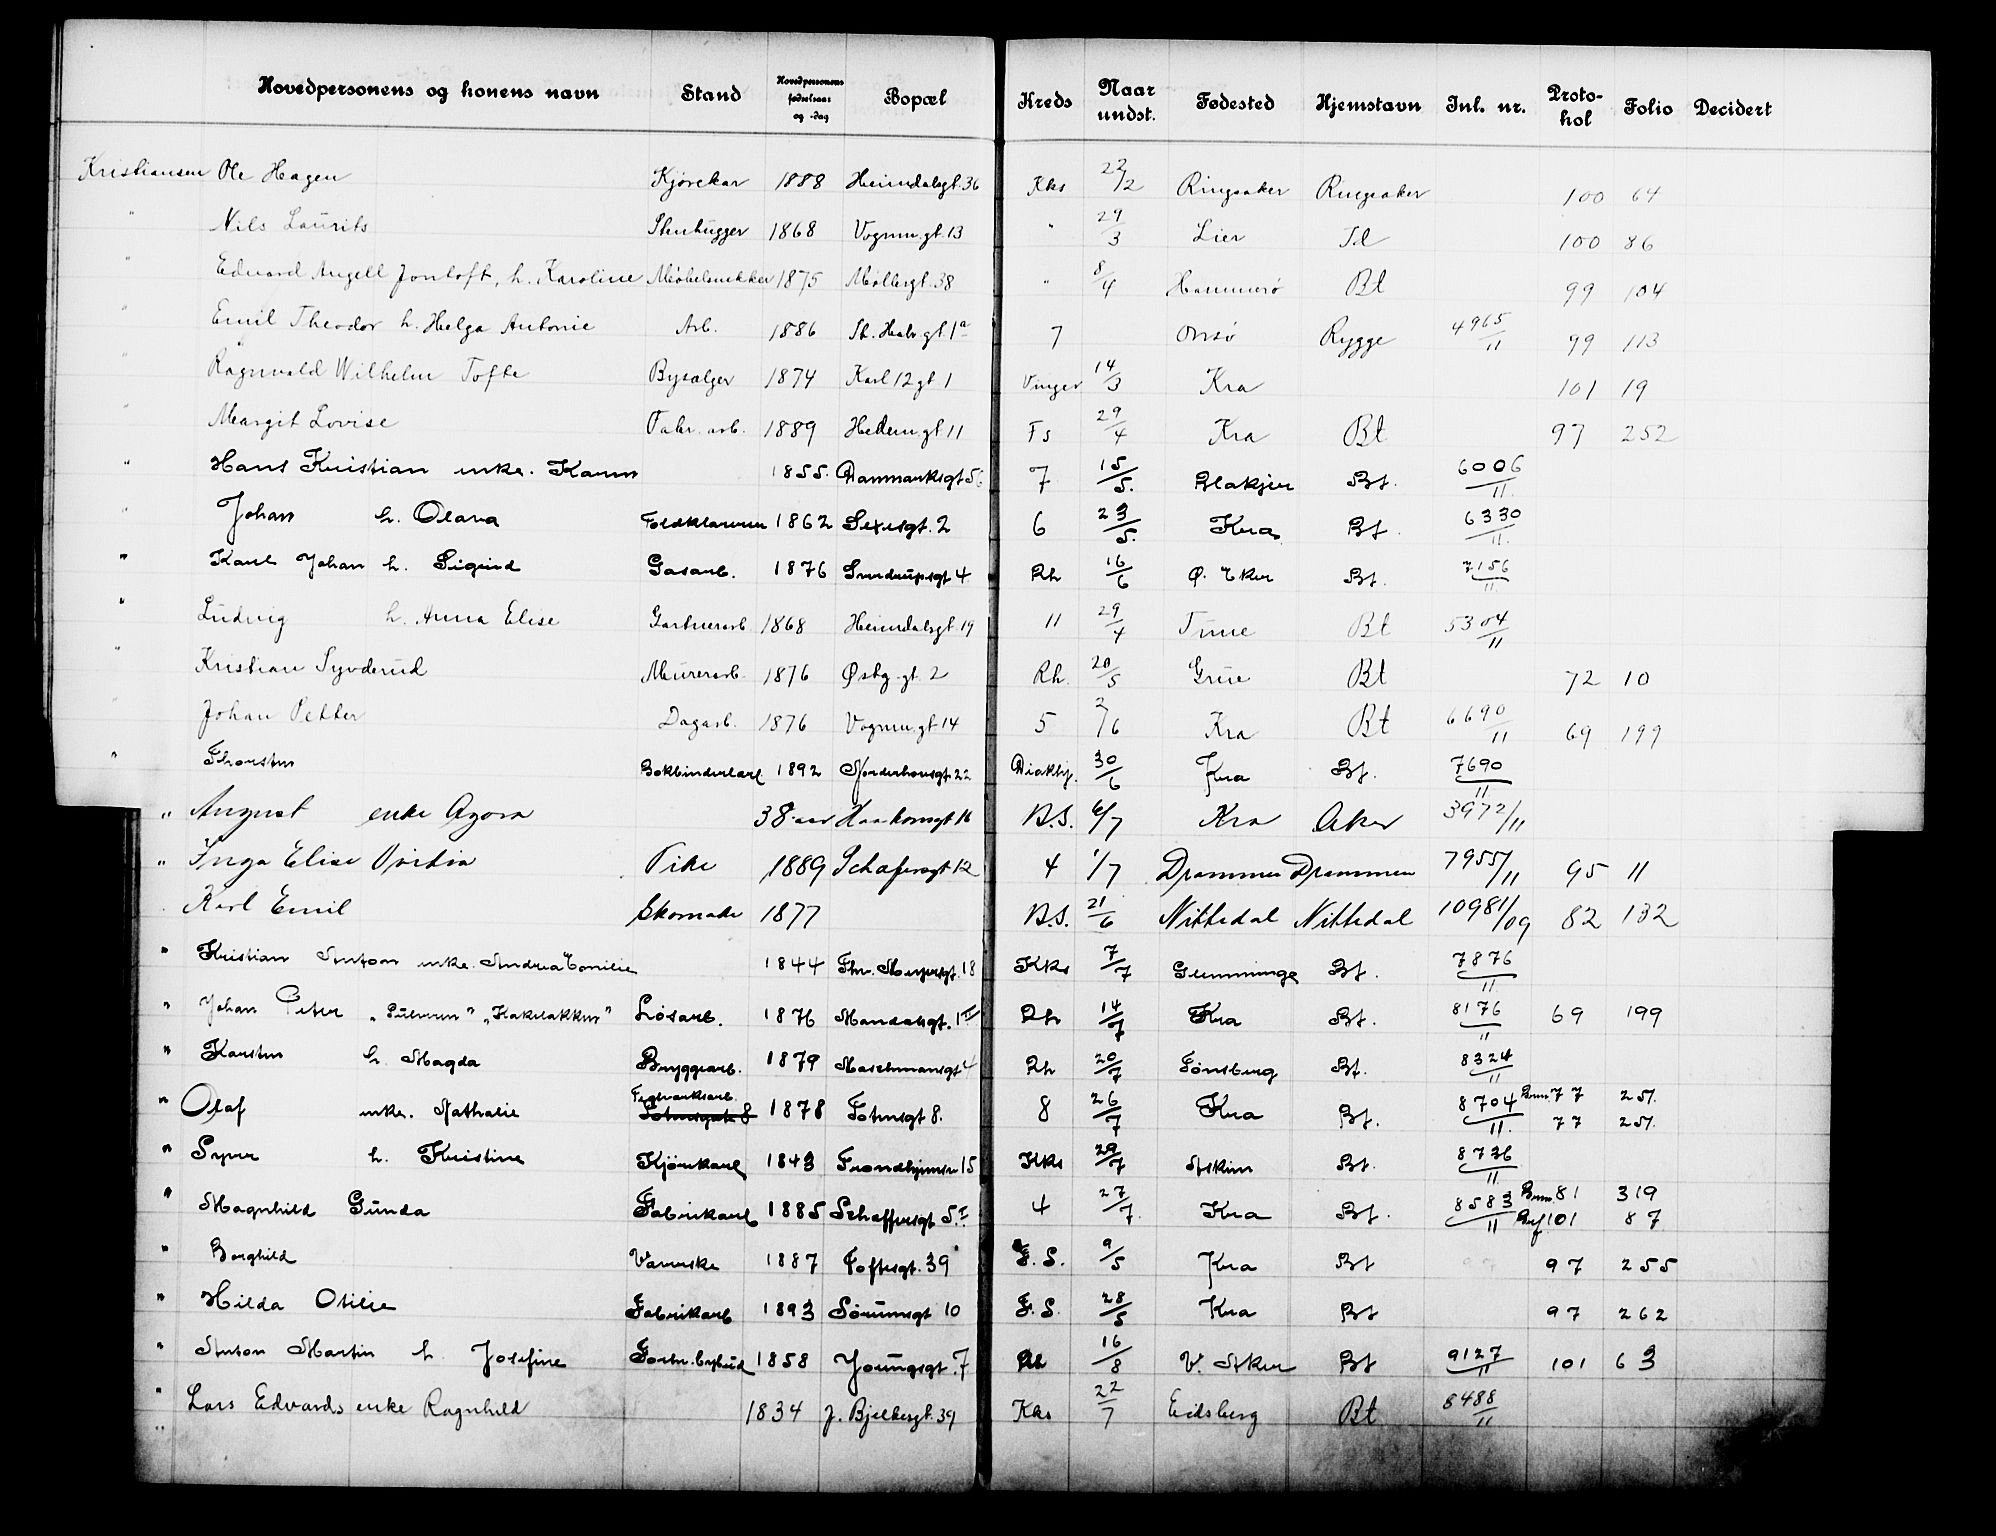 Hovedpersonens og konens navn Stand Hovedpersonens fødselsaar og -dag Bopæl Kreds Naar undst. Fødested Hjemstavn Inl. nr. Protokol Folio Decidert
Kristiansen Ole Hagen Kjørekar 1888 Heimdalsgt. 36 Kks 22/2 Ringsaker Ringsaker 100 64
" Nils Laurits Stenhugger 1868 Vognm.gt. 13 " 29/3 Lier Td 100 86
" Edvard Angell Jentoft, h. Karoline Møbelsnekker 1875 Møllergt. 38 " 8/4 Hammerø Bt 99 104
" Emil Theodor h. Helga Antonie Arb. 1886 St. Halv.gt. 1a 7 Onsø Rygge 4965/11 99 113
" Ragnvald Wilhelm Tofte Bysælger 1874 Karl 12 gt 1 Vinger 14/3 Kra 101 19
" Margit Lovise Fabr. arb. 1889 Hedem.gt 11 Fs 29/4 Kra Bt 97 252
" Hans Kristian enke. Karen 1855. Danmarksgt 56 7 15/5. Blakjer Bt. 6006/11.
" Johan h. Olava 1862 Sexesgt. 2 6 23/5. Kra. Bt. 6330/11.
" Karl Johan h. Sigrid Gasarb. 1876 Smedrupsgt 4 Rh 16/6 Ø. Eker Bt. 7156/11.
" Ludvig h. Anna Elise Gartnerarb. 1868 Heimdalsgt. 19 11 29/4 Tune Bt 5304/11
" Kristian Syvderud Murerarb. 1876 Østbg.gt. 2 Rh. 20/5 Grue Bt 72 10
" Johan Petter Dagarb. 1876 Vognm.gt 14 5 2/6 Kra Bt 6690/11 69 199
" Thorsten Bokbinderlærl 1892 Nordenhousgt. 22 Diakhj. 30/6 Kra Bt. 7690/11
" August enke Agora 38 aar Haakonsgt 16 B.S. 6/7 Kra Aker 3972/11
" Inga Elise Pike 1889 Schafersgt 12 4 1/7 Drammen Drammen 7955/11 95 11
Karl Emil Skomake 1877 B.S. 21/6 Nittedal Nittedal 10981/09 82 132
" Kristian Anton enke. Andrea Emilie 1844 Thv. Meyersgt. 18 Kks 7/7 Bt. 7876/11.
" Johan Peter „Pulveren" „Kakelakken" Løsarb. 1876 Mandalsgt. 1 II Rh 14/7 Kra Bt. 8176/11 69 199
" Karsten h. Magda Bryggearb. 1879 Maschmansgt 4 Rh 20/7 Tønsberg Bt. 8324/11
" Olaf enke. Nathalie Fedevarksarb. Totensgate 8 1878 Totensgt 8. 8 26/7 Kra Bt. 8704/11. Brun 77 251.
77 251.
" Syver h. Kristine Kjørekarl 1843 Trondhjemsv 15 Kks 29/7 Askim Bt. 8736/11.
" Magnhild Gunda Fabrikarb 1885 Schaffersgt 5 I 4 27/7. Kra Bt. 8583/11 Brun 81 319
101 87
" Borghild Vaskerske 1887 Toftesgt. 39 F. S. 9/5 Kra Bt 97 255
" Hilda Otilie Fabrikarb 1893 Sørumsgt 10 F. S. 28/5 Kra Bt 97 262
" Anton Martin h. Josefine 1858 Youngsgt. 7 Rh 16/8 V. Aker Bt 9127/11 101 63
" Lars Edvards enke Ragnhild 1834 J. Bjelkesgt. 39 Kks 22/7 Eidsberg Bt 8488/11
"